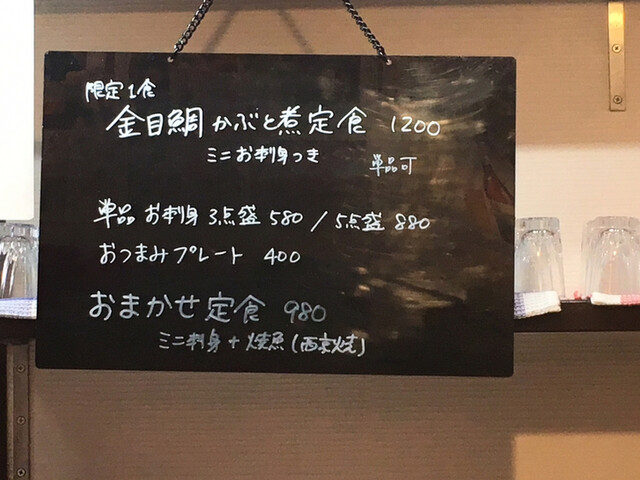 限定1食
金目鯛かぶと煮定食 1200
ミニお刺身つき 単品可
単品 お刺身 3点盛 580 / 5点盛 880
おつまみプレート 400
おまかせ定食 980
ミニ刺身 + 焼魚(西京焼)